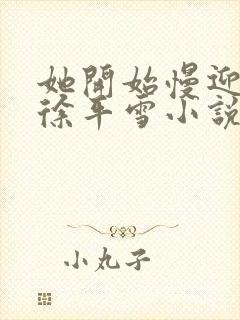 她開始慢迎
徐平雪小說
小丸子